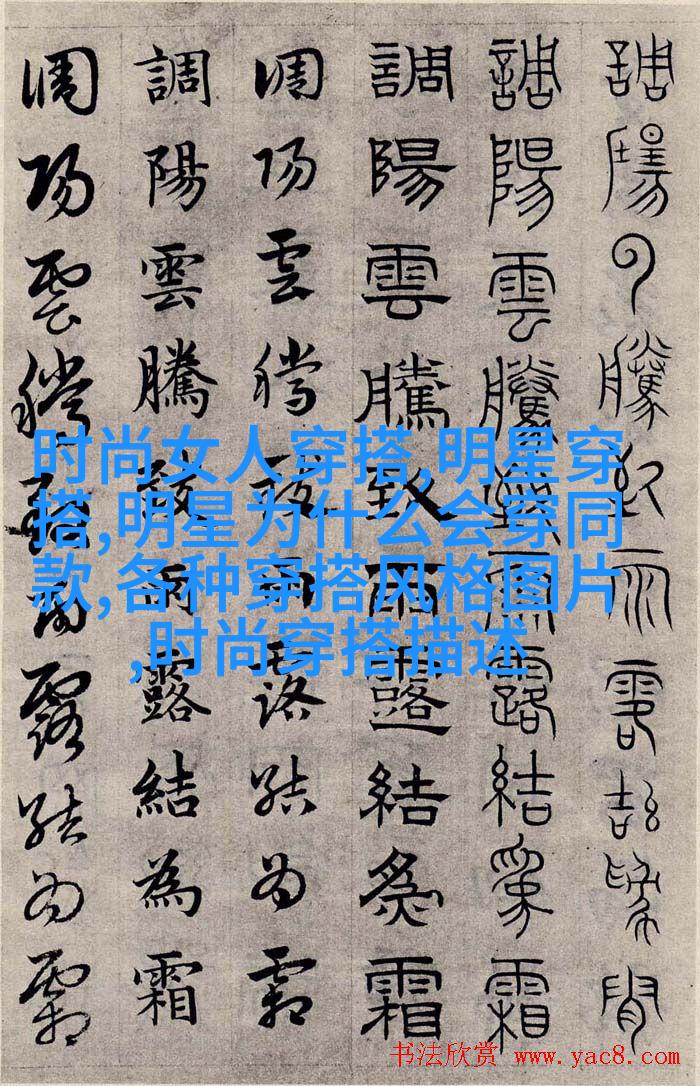 調陽雲騰致雨露結為霜
調陽雲騰致雨露結為霜
調陽雲騰致雨露結為霜
調陽雲騰致雨露結為霜
調陽雲騰致雨露結為霜
調陽雲騰致雨露結為霜
时尚女人穿搭,明星穿
搭,明星为什么会穿同
款,各种穿搭风格图片
,时尚穿搭描述
书法欣赏 www.yac8.com